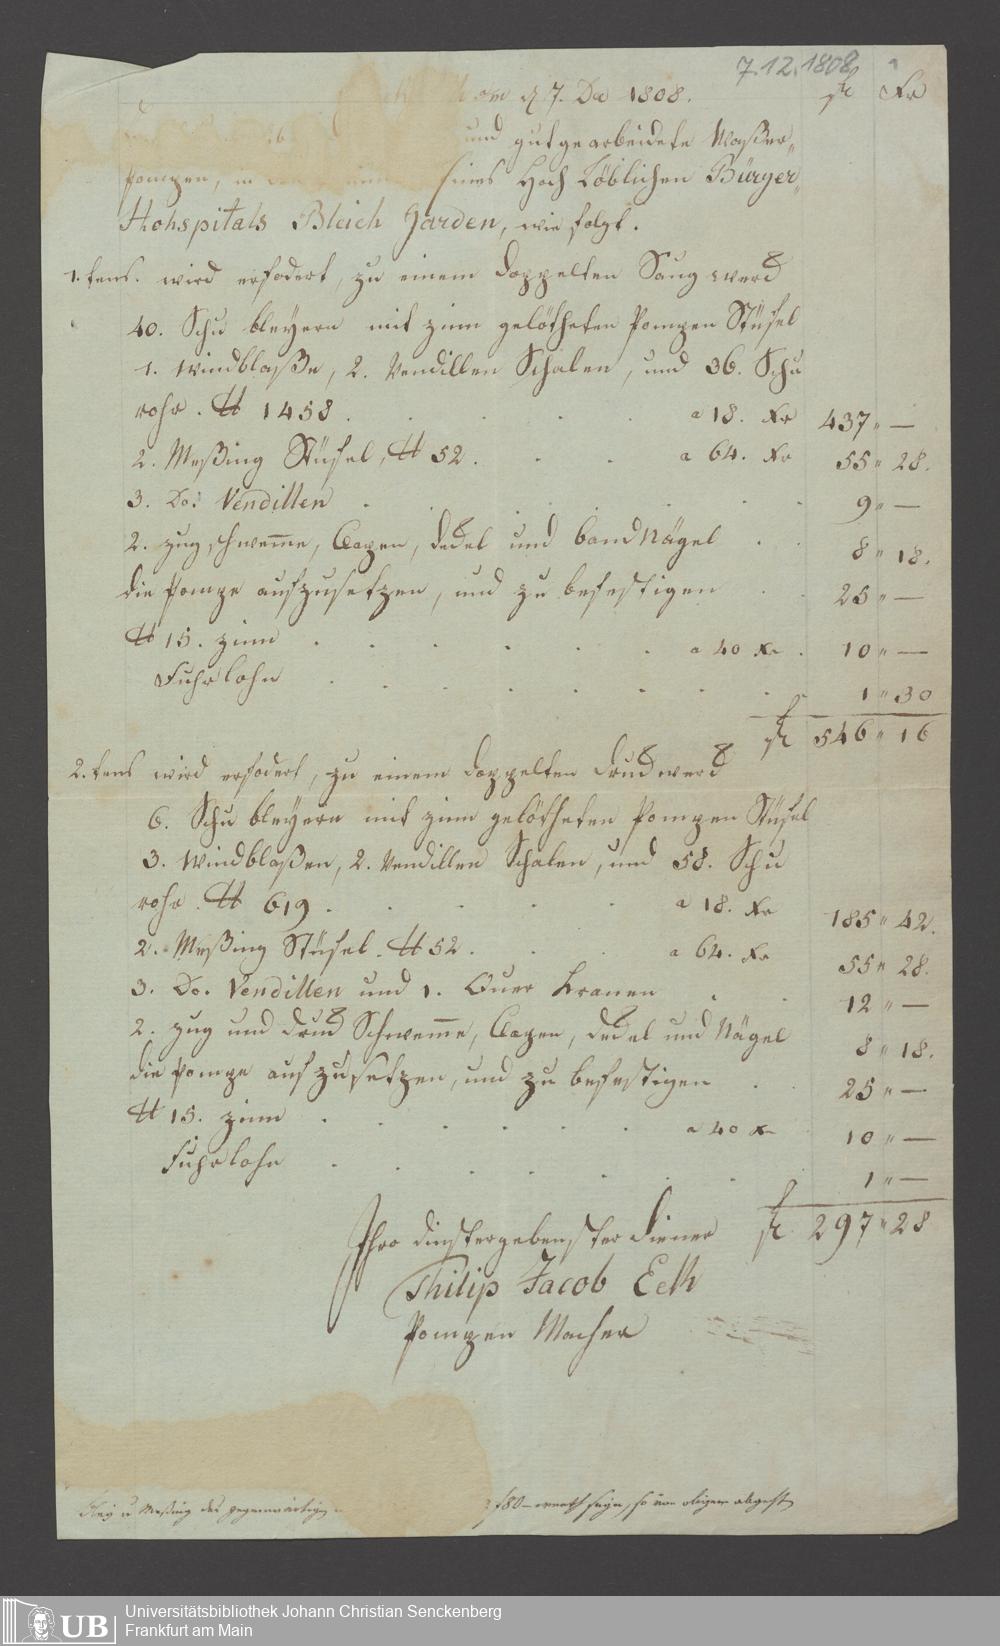 7.12.1808
d 7. De 1808. fl Kr
und gut gearbeidete Waßer„
Pompen, in Eines Hoch Löblichen Bürger„
Hohspitals Bleich Garden, wie folgt.
1.tens. wird erfodert, zu einem doppelten Saug werck
40. Schu bleyern mit zinn gelötheten Pompen Stüfel
1. Windblaße, 2. Vendillen Schalen, und 36. Schu
rohr. ℔ 1458. a 18. Kr 437 " —
2. Meßing Stüfel, ℔ 52. a 64. Kr 55 " 28.
3. Do. Vendillen 9 " —
2. zug schwemme, Capen, deckel und band Nägel 8 " 18.
die Pompe aufzusetzen, und zu befestigen 25 " —
℔ 15. zinn a 40 Kr. 10 " —
Fuhrlohn 1 " 30
fl 546 " 16
2.tens wird erfodert, zu einem doppelten Druckwerck
6. Schu bleyern mit zinn gelötheten Pompen Stüfel
3. Windblaßen, 2. Vendillen Schalen, und 58. Schu
rohr. ℔ 619. a 18. Kr 185 " 42.
2. Meßing Stüfel. ℔ 52. a 64. Kr 55 " 28.
3. Do. Vendillen und 1. Quer Kranen 12 " —
2. zug und druck Schwemme, Capen, deckel und Nägel 8 " 18.
die Pompe aufzusetzen, und zu befestigen 25 " —
℔ 15. zinn a 40 Kr 10 " —
Fuhrlohn 1 " —
fl 297 " 28
Ihro dinstergebenster diener
Philip Jacob Eeth
Pompen Macher
Bley u Meßing des gegenwärtigen f 80 – werth seyn, so von obigem abgeht
UB Universitätsbibliothek Johann Christian Senckenberg
Frankfurt am Main